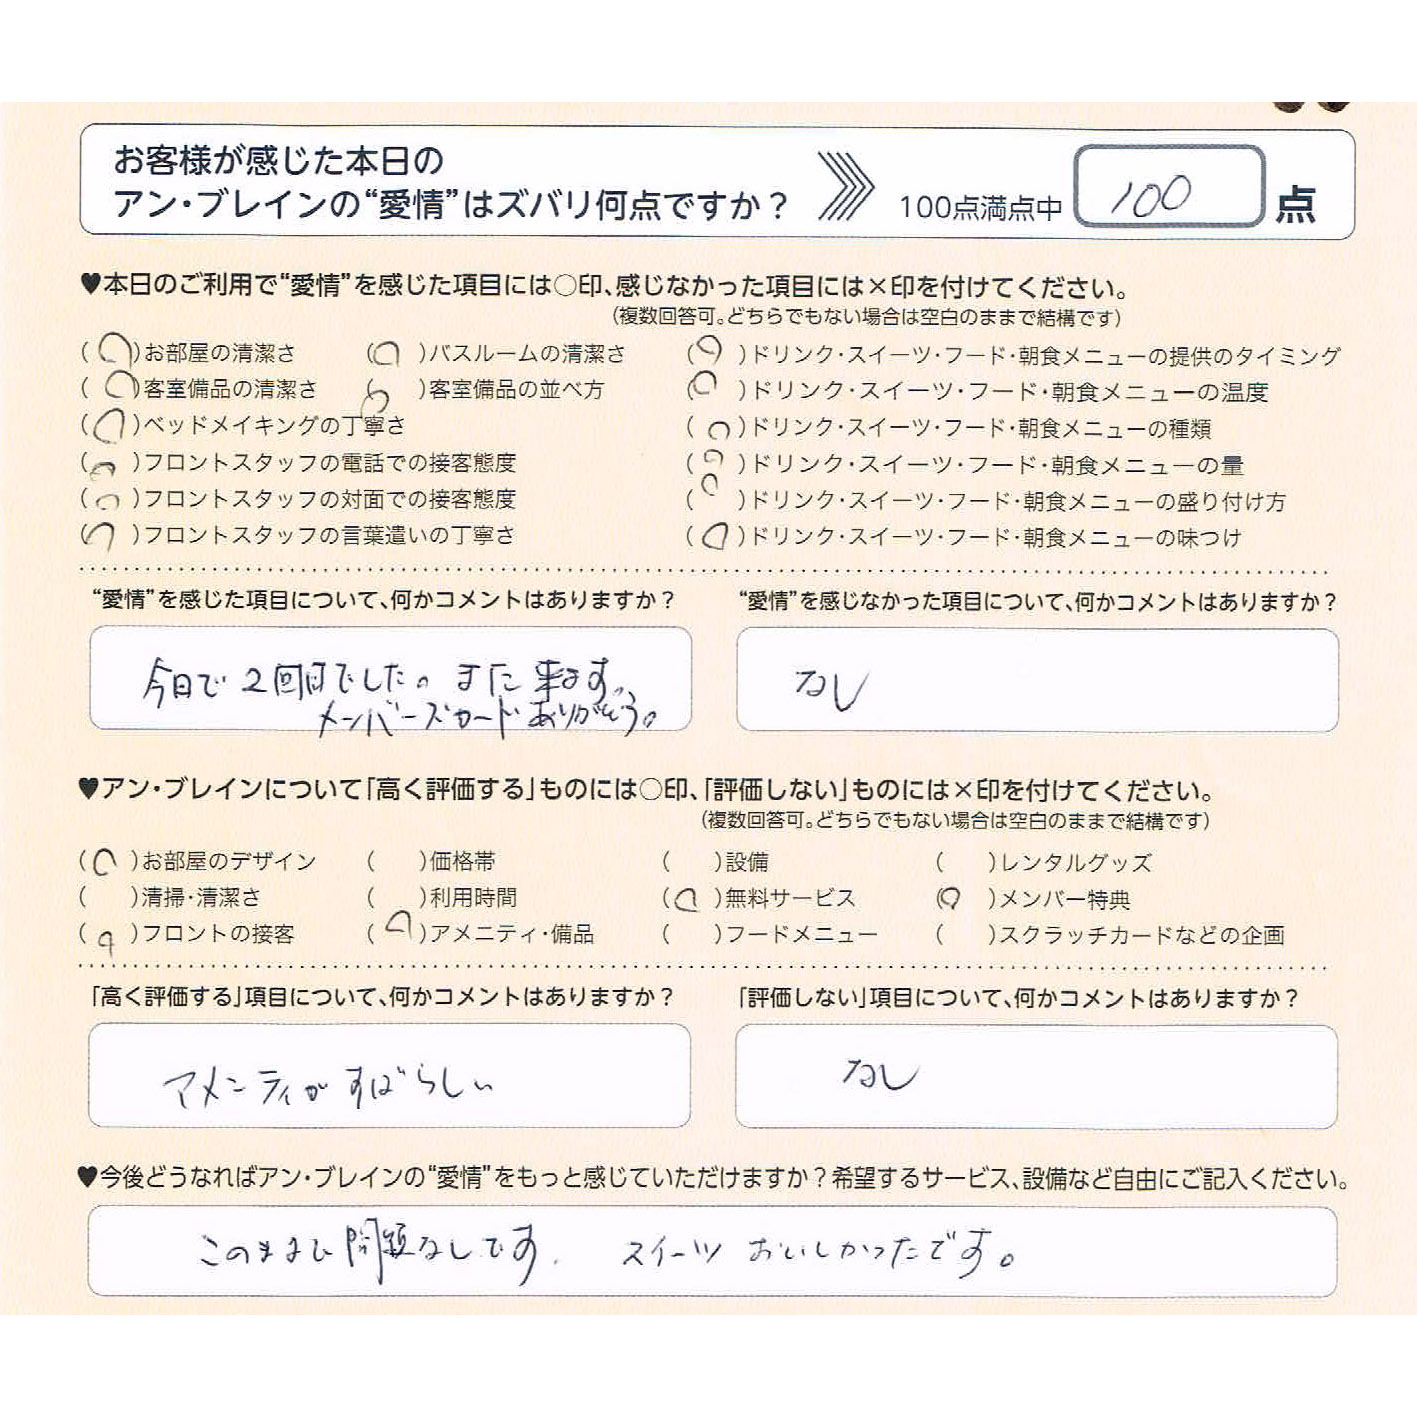 お客様が感じた本日の
アン・ブレインの“愛情”はズバリ何点ですか？ 100点満点中 100 点
♥本日のご利用で“愛情”を感じた項目には○印、感じなかった項目には×印を付けてください。
(複数回答可。どちらでもない場合は空白のままで結構です)
(○)お部屋の清潔さ (○)バスルームの清潔さ (○)ドリンク・スイーツ・フード・朝食メニューの提供のタイミング
(○)客室備品の清潔さ (○)客室備品の並べ方 (○)ドリンク・スイーツ・フード・朝食メニューの温度
(○)ベッドメイキングの丁寧さ (○)ドリンク・スイーツ・フード・朝食メニューの種類
(○)フロントスタッフの電話での接客態度 (○)ドリンク・スイーツ・フード・朝食メニューの量
(○)フロントスタッフの対面での接客態度 (○)ドリンク・スイーツ・フード・朝食メニューの盛り付け方
(○)フロントスタッフの言葉遣いの丁寧さ (○)ドリンク・スイーツ・フード・朝食メニューの味つけ
“愛情”を感じた項目について、何かコメントはありますか？ “愛情”を感じなかった項目について、何かコメントはありますか？
今日で2回目でした。また来ます。 なし
メンバーズカードありがとう。
♥アン・ブレインについて「高く評価する」ものには○印、「評価しない」ものには×印を付けてください。
(複数回答可。どちらでもない場合は空白のままで結構です)
(○)お部屋のデザイン ( )価格帯 ( )設備 ( )レンタルグッズ
( )清掃・清潔さ ( )利用時間 (○)無料サービス (○)メンバー特典
(○)フロントの接客 (○)アメニティ・備品 ( )フードメニュー ( )スクラッチカードなどの企画
「高く評価する」項目について、何かコメントはありますか？ 「評価しない」項目について、何かコメントはありますか？
アメニティがすばらしい なし
♥今後どうなればアン・ブレインの“愛情”をもっと感じていただけますか？希望するサービス、設備など自由にご記入ください。
このままで問題なしです. スイーツ おいしかったです。